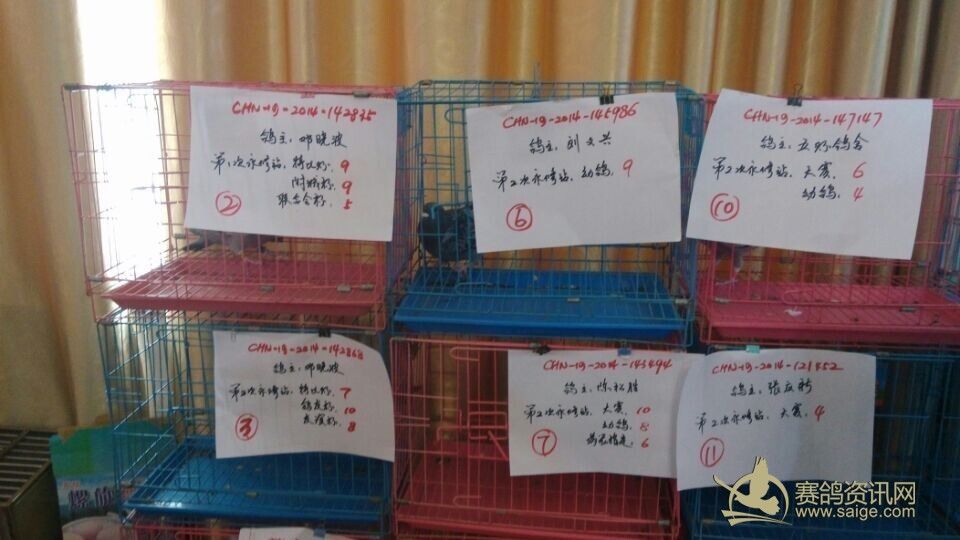 CHN-19-2014-142835
鸽主:邓晓波
第1次永修站,特比 9
9
5
②
CHN-19-2014-145986
鸽主:刘文兴
第2次永修站,幼鸽 9
⑥
CHN-19-2014-147147
鸽主:友好鸽舍
第2次永修站,大赛 6
幼鸽 4
⑩
CHN-19-2014-142868
鸽主:邓晓波
第2次永修站,特比 7
10
8
③
CHN-19-2014-143494
鸽主:陈松胜
第2次永修站,大赛,10
幼鸽,8
6
⑦
CHN-19-2014-121452
鸽主:张友新
第2次永修站,大赛 4
⑪
赛鸽资讯网
www.saige.com